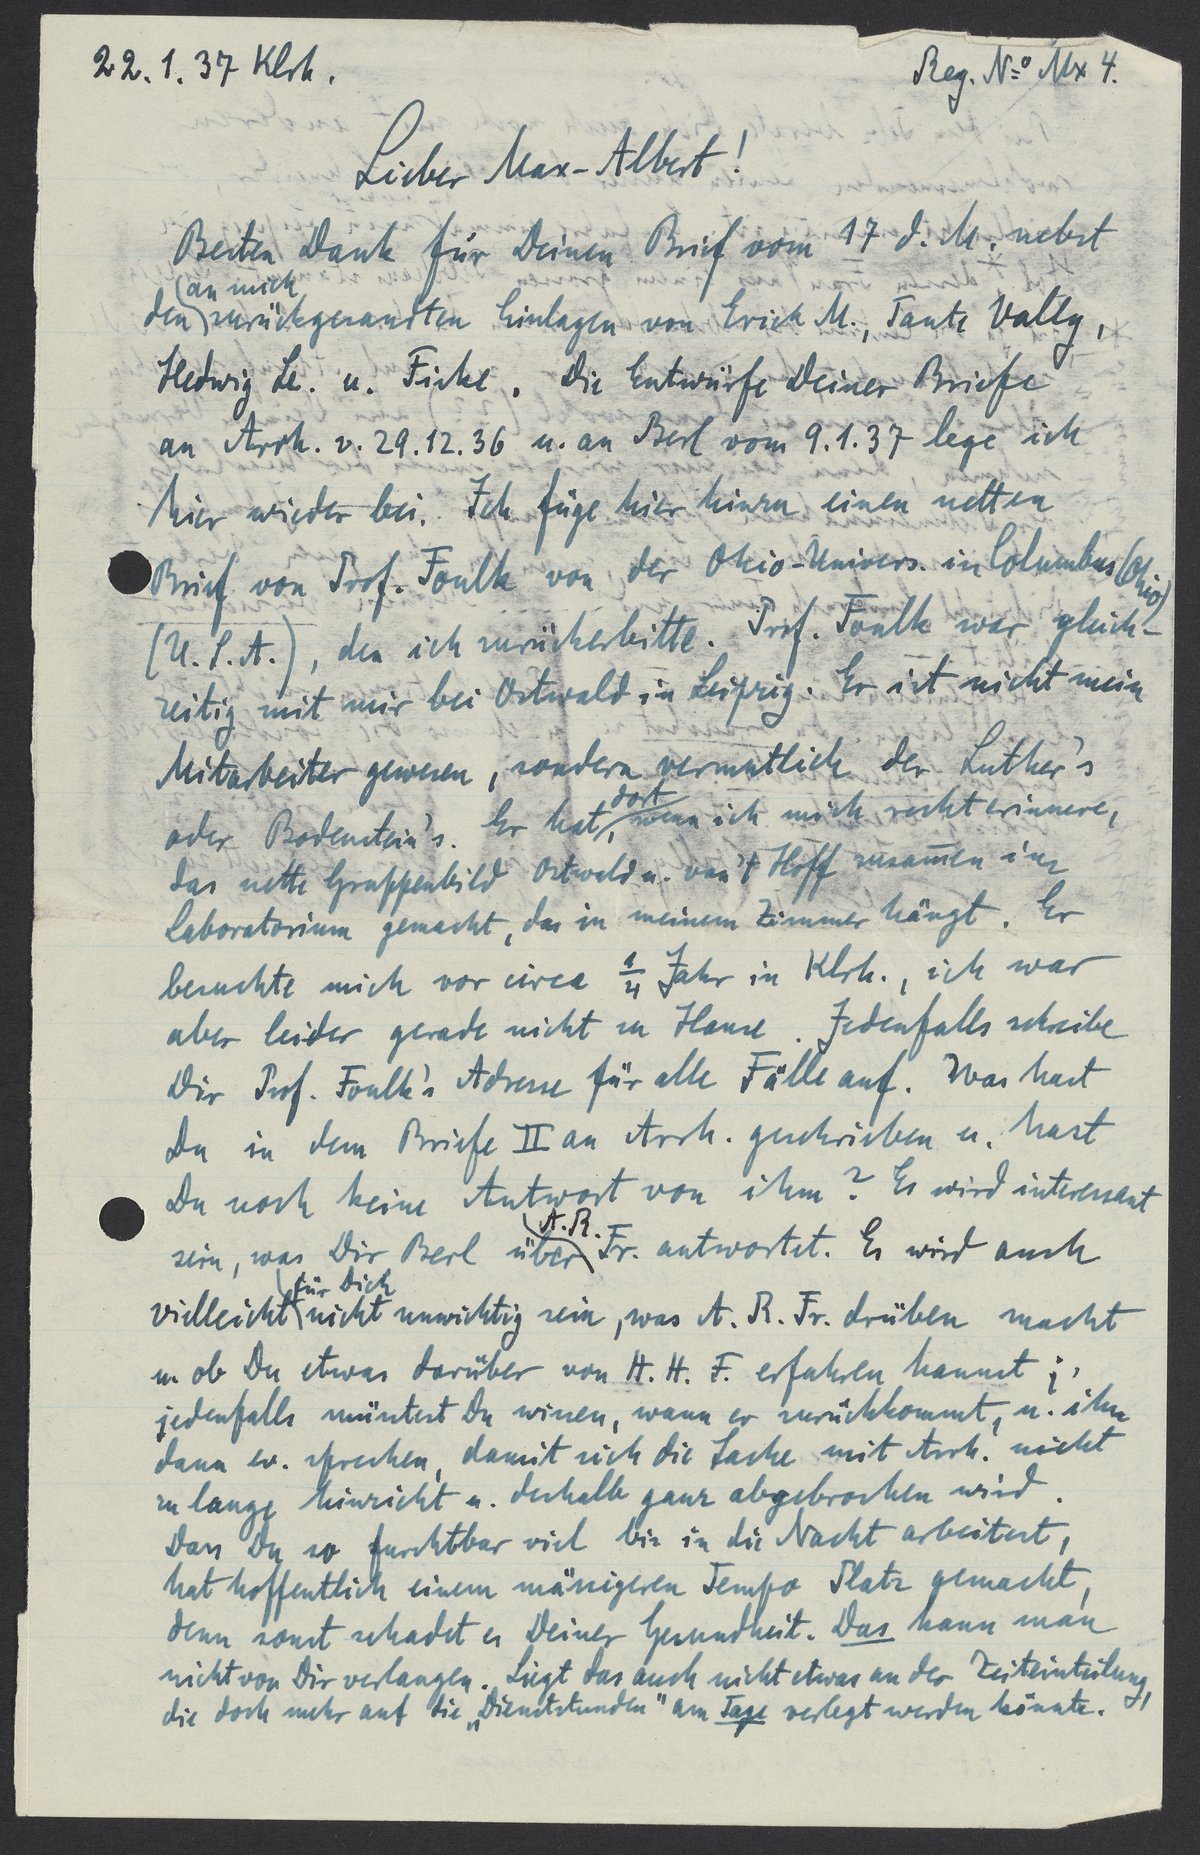 22.1.37 Klrh.
Reg. No Mx 4.
Lieber Max-Albert!
Besten Dank für Deinen Brief vom 17 d. M. nebst
an mich
den zurückgesandten Einlagen von Erich M., Tante Vally,
Hedwig Le. u. Ficke. Die Entwürfe Deiner Briefe
an Arrh. v. 29.12.36 u. an Berl vom 9.1.37 lege ich
hier wieder bei. Ich füge hier hinzu einen netten
Brief von Prof. Foulk von der Ohio-Univers. in Columbus (Ohio)
(U.S.A.), den ich zurückerbitte. Prof. Foulk war gleich-
zeitig mit mir bei Ostwald in Leipzig. Er ist nicht mein
Mitarbeiter gewesen, sondern vermutlich der Luther's
oder Bodenstein's. Er hat, wenn ich mich recht erinnere,
dort
das nette Gruppenbild Ostwald u. van't Hoff zusam̅en im
Laboratorium gemacht, das in meinem Zimmer hängt. Er
besuchte mich vor circa 1/4 Jahr in Klrh., ich war
aber leider gerade nicht zu Hause. Jedenfalls schreibe
Dir Prof. Foulk's Adresse für alle Fälle auf. Was hast
Du in dem Briefe II an Arrh. geschrieben u. hast
Du noch keine Antwort von ihm? Es wird interessant
A.R.
sein, was Dir Berl über Fr. antwortet. Es wird auch
für Dich
vielleicht nicht unwichtig sein, was A. R. Fr. drüben macht
u. ob Du etwas darüber von H. H. F. erfahren kannst;
jedenfalls müsstest Du wissen, wann er zurückkommt, u. ihn
dann ev. sprechen, damit sich die Sache mit Arrh. nicht
zu lange hinzieht u. deshalb ganz abgebrochen wird.
Dass Du so furchtbar viel bis in die Nacht arbeitest,
hat hoffentlich einem mässigeren Tempo Platz gemacht,
denn sonst schadet es Deiner Gesundheit. Das kann man
nicht von Dir verlangen. Liegt das auch nicht etwas an der Zeiteinteilung,
die doch mehr auf die „Dienststunden" am Tage verlegt werden könnte.